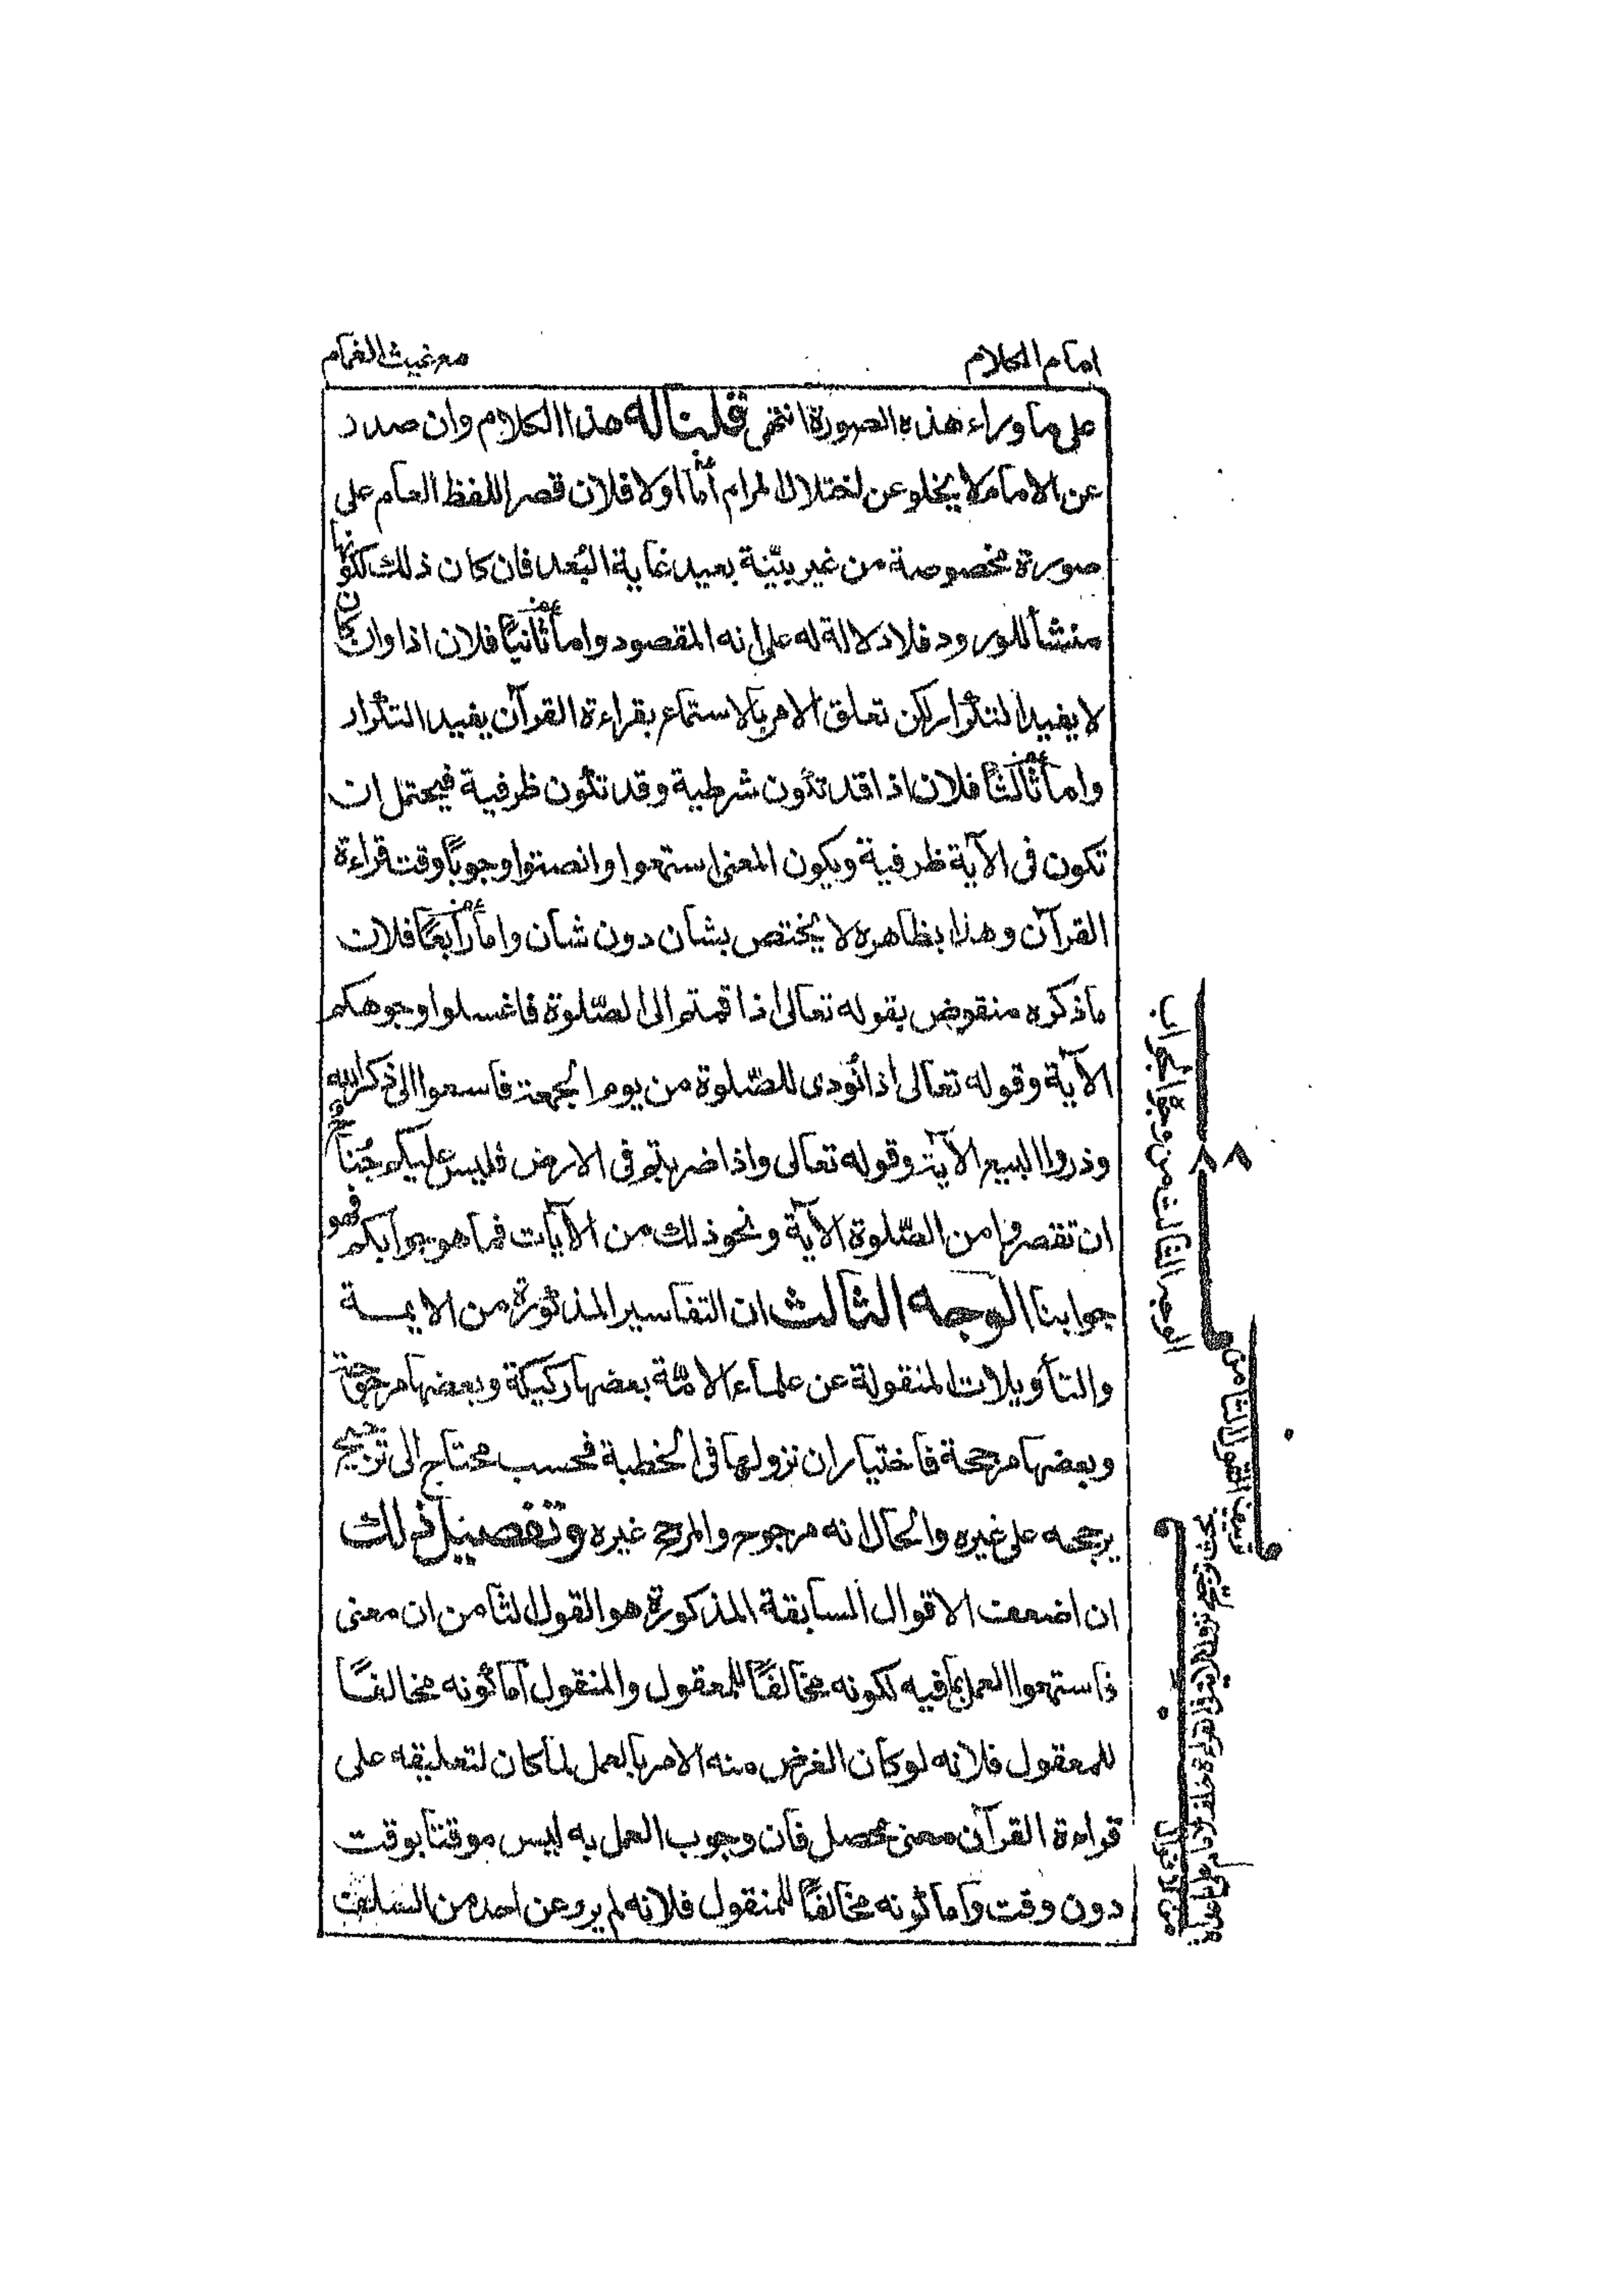 امام الكلام
مع غيث الغمام
على ما وراء هذه الصورة انتهى قلنا له هذا الكلام وان صدر
عن الامام لا يخلو عن اختلال المرام أمّا اولا فلان قصر اللفظ العام على
صورة مخصوصة من غير بيّنة بعيد غاية البُعد فان كان ذلك لكونها
منشأ للورود فلا دلالة له على انه المقصود واما ثانيًا فلان اذا وان كان
لا يفيد التكرار لكن تعلق الامر بالاستماع بقراءة القرآن يفيد التكرار
واما ثالثًا فلان اذا قد تكون شرطية وقد تكون ظرفية فيحتمل ان
تكون فى الآية ظرفية ويكون المعنى استمعوا وانصتوا وجوبًا وقت قراءة
القرآن وهذا بظاهره لا يختص بشان دون شان واما رابعًا فلان
ما ذكره منقوض بقوله تعالى اذا قمتم الى الصّلوة فاغسلوا وجوهكم
الآية وقوله تعالى اذا نُودى للصّلوة من يوم الجمعة فاسعوا الى ذكر الله
وذروا البيع الآية وقوله تعالى واذا ضربتم فى الارض فليس عليكم جُناح
ان تقصروا من الصّلوة الآية ونحو ذلك من الآيات فما هو جوابكم فهو
جوابنا الوجه الثالث ان التفاسير المذكورة من الايمة
والتأويلات المنقولة عن علماء الامّة بعضها ركيكة وبعضها مرجوحة
وبعضها مرجحة فاختيار ان نزولها فى الخطبة فحسب محتاج الى ترجيح
يرجحه على غيره والحال انه مرجوح والمرجح غيره وتفصيل ذلك
ان اضعف الاقوال السابقة المذكورة هو القول الثامن ان معنى
فاستمعوا العمل بما فيه لكونه مخالفًا للمعقول والمنقول أما كونه مخالفًا
للمعقول فلانه لو كان الغرض منه الامر بالعمل لما كان لتعليقه على
قراءة القرآن معنى محصل فان وجوب العمل به ليس موقتا بوقت
دون وقت وأما كونه مخالفًا للمنقول فلانه لم يرو عن احد من السلف
الوجه الثالث من وجوه الجواب
تزييف القول الثامن